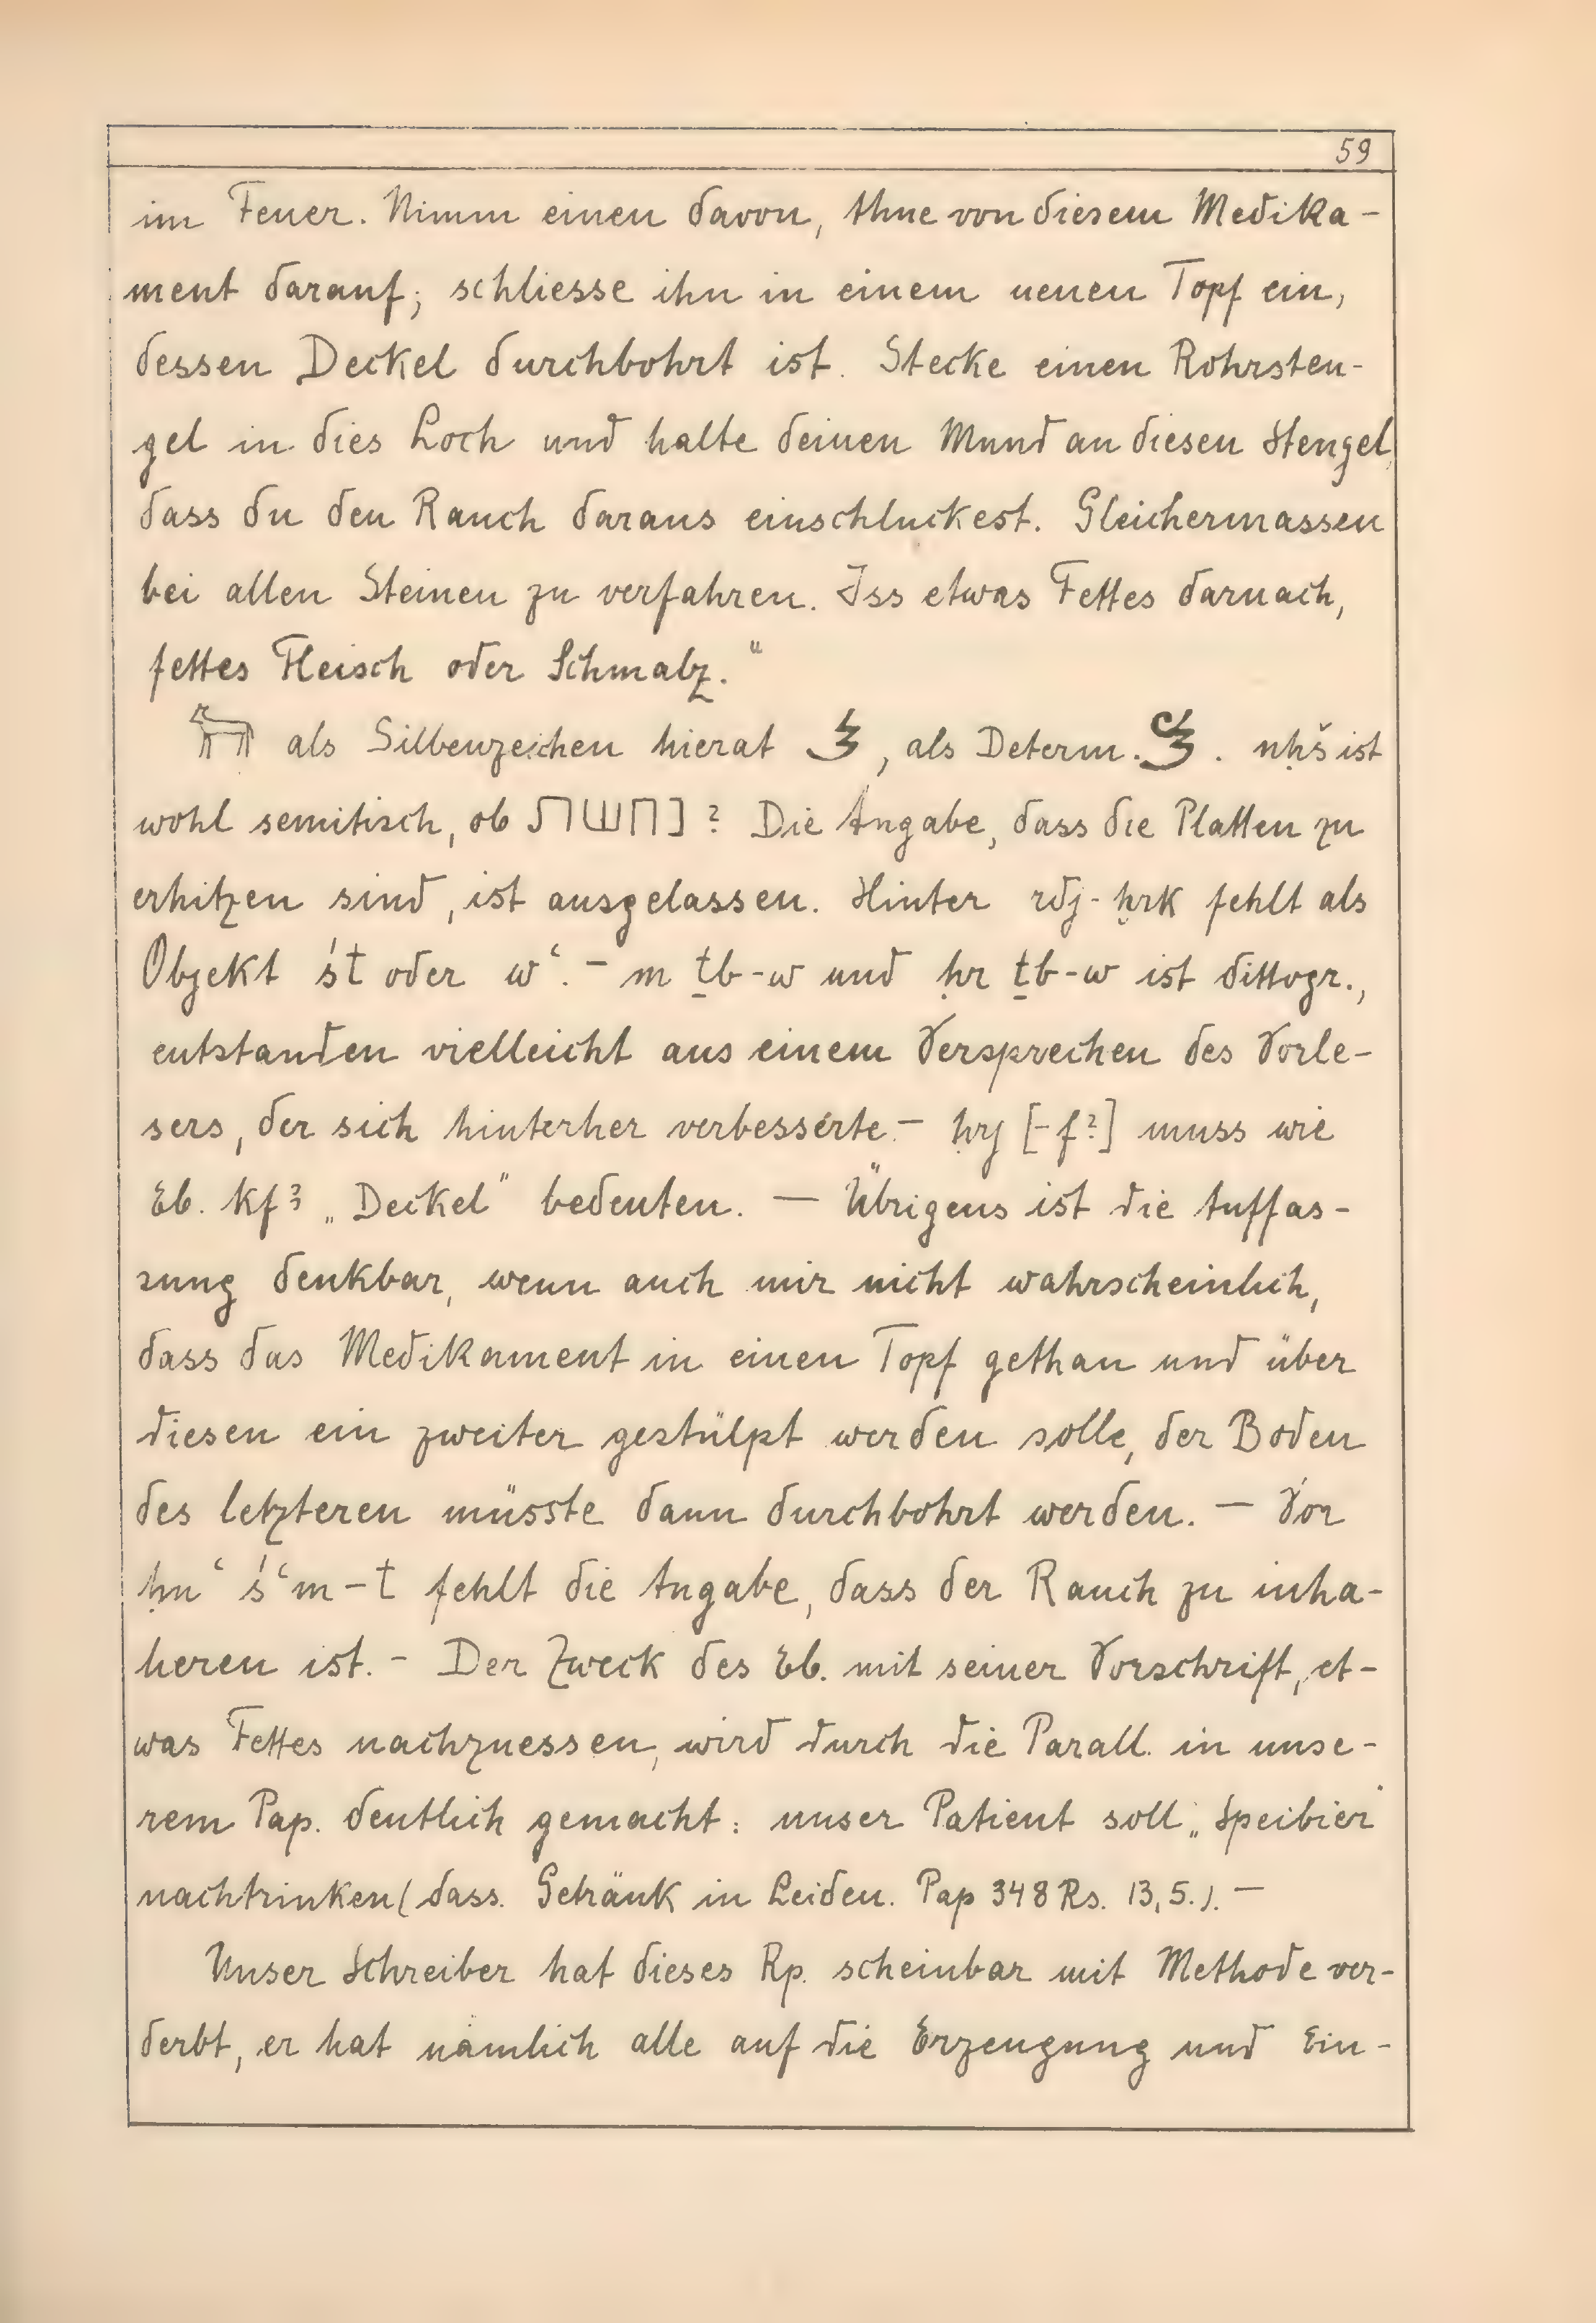 59
im Feuer. Nimm einen davon, thue von diesem Medika-
ment darauf; schliesse ihn in einem neuen Topf ein,
dessen Deckel durchbohrt ist. Stecke einen Rohrsten-
gel in dies Loch und halte deinen Mund an diesen Stengel,
dass du den Rauch daraus einschluckest. Gleichermassen
bei allen Steinen zu verfahren. Iss etwas Fettes darnach,
fettes Fleisch oder Schmalz."
als Silbenzeichen hierat , als Determ. . nḥš ist
wohl semitisch, ob נחשת? Die Angabe, dass die Platten zu
erhitzen sind, ist ausgelassen. Hinter rdj-ḥrk fehlt als
Objekt śt oder wʿ. - m ṯb-w und ḥr ṯb-w ist dittogr.,
entstanden vielleicht aus einem Versprechen des Vorle-
sers, der sich hinterher verbesserte - ḥrj [-f?] muss wie
Eb. kfꜣ „Deckel" bedeuten. — Übrigens ist die Auffas-
sung denkbar, wenn auch mir nicht wahrscheinlich,
dass das Medikament in einen Topf gethan und über
diesen ein zweiter gestülpt werden solle, der Boden
des letzteren müsste dann durchbohrt werden. — Vor
ḥnʿ śʿm-t fehlt die Angabe, dass der Rauch zu inha-
lieren ist. - Der Zweck des Eb. mit seiner Vorschrift, et-
was Fettes nachzuessen, wird durch die Parall. in unse-
rem Pap. deutlich gemacht: unser Patient soll „Speibier"
nachtrinken (dass. Getränk in Leiden. Pap 348 Rs. 13,5.). —
Unser Schreiber hat dieses Rp. scheinbar mit Methode ver-
derbt, er hat nämlich alle auf die Erzeugung und Ein-